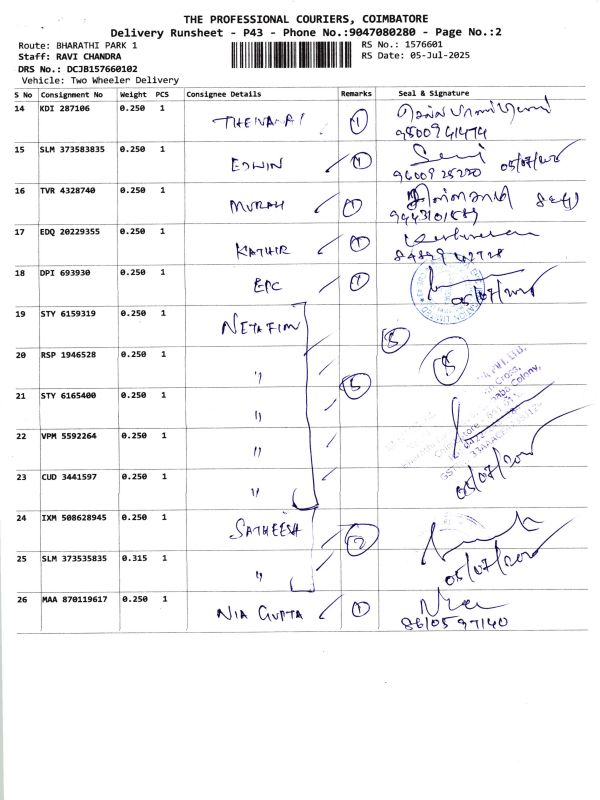 THE PROFESSIONAL COURIERS, COIMBATORE
Delivery Runsheet - P43 - Phone No.:9047080280 - Page No.:2
Route: BHARATHI PARK 1 RS No.: 1576601
Staff: RAVI CHANDRA RS Date: 05-Jul-2025
DRS No.: DCJB157660102
Vehicle: Two Wheeler Delivery
S No Consignment No Weight PCS Consignee Details Remarks Seal & Signature
14 KDI 287106 0.250 1 1
9500941474
15 SLM 373583835 0.250 1 EDWIN 1
9600925250
16 TVR 4328740 0.250 1 MURALI 1
17 EDQ 20229355 0.250 1 KATHIR 1
18 DPI 693930 0.250 1 EPC 1
19 STY 6159319 0.250 1 NETAFIM 5
20 RSP 1946528 0.250 1 " 5 5
21 STY 6165400 0.250 1 "
22 VPM 5592264 0.250 1 "
23 CUD 3441597 0.250 1 "
24 IXM 508628945 0.250 1 SATHEESH 2
25 SLM 373535835 0.315 1 "
26 MAA 870119617 0.250 1 NIA GUPTA 1
8610597140